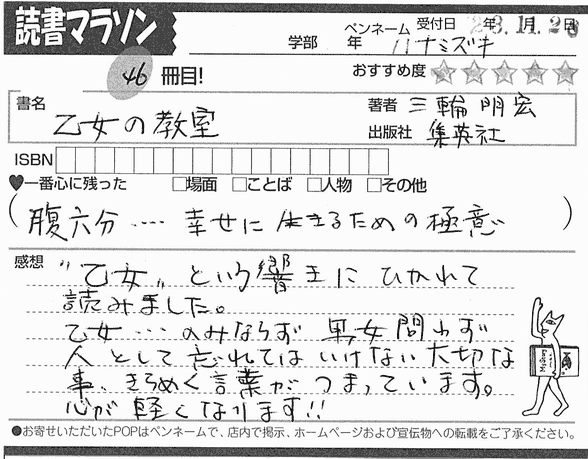 読書マラソン
学部 年
ペンネーム ハナミズキ
受付日 23.11.2
46 冊目!
おすすめ度 ☆☆☆☆☆
書名 乙女の教室
著者 三輪明宏
出版社 集英社
ISBN
♥一番心に残った □場面 □ことば □人物 □その他
(腹六分‥‥幸せに生きるための極意)
感想 "乙女"という響きにひかれて
読みました。
乙女…のみならず男女問わず
人として忘れてはいけない大切な
事、きらめく言葉がつまっています。
心が軽くなります!!
●お寄せいただいたPOPはペンネームで、店内で掲示、ホームページおよび宣伝物への転載をご了承ください。